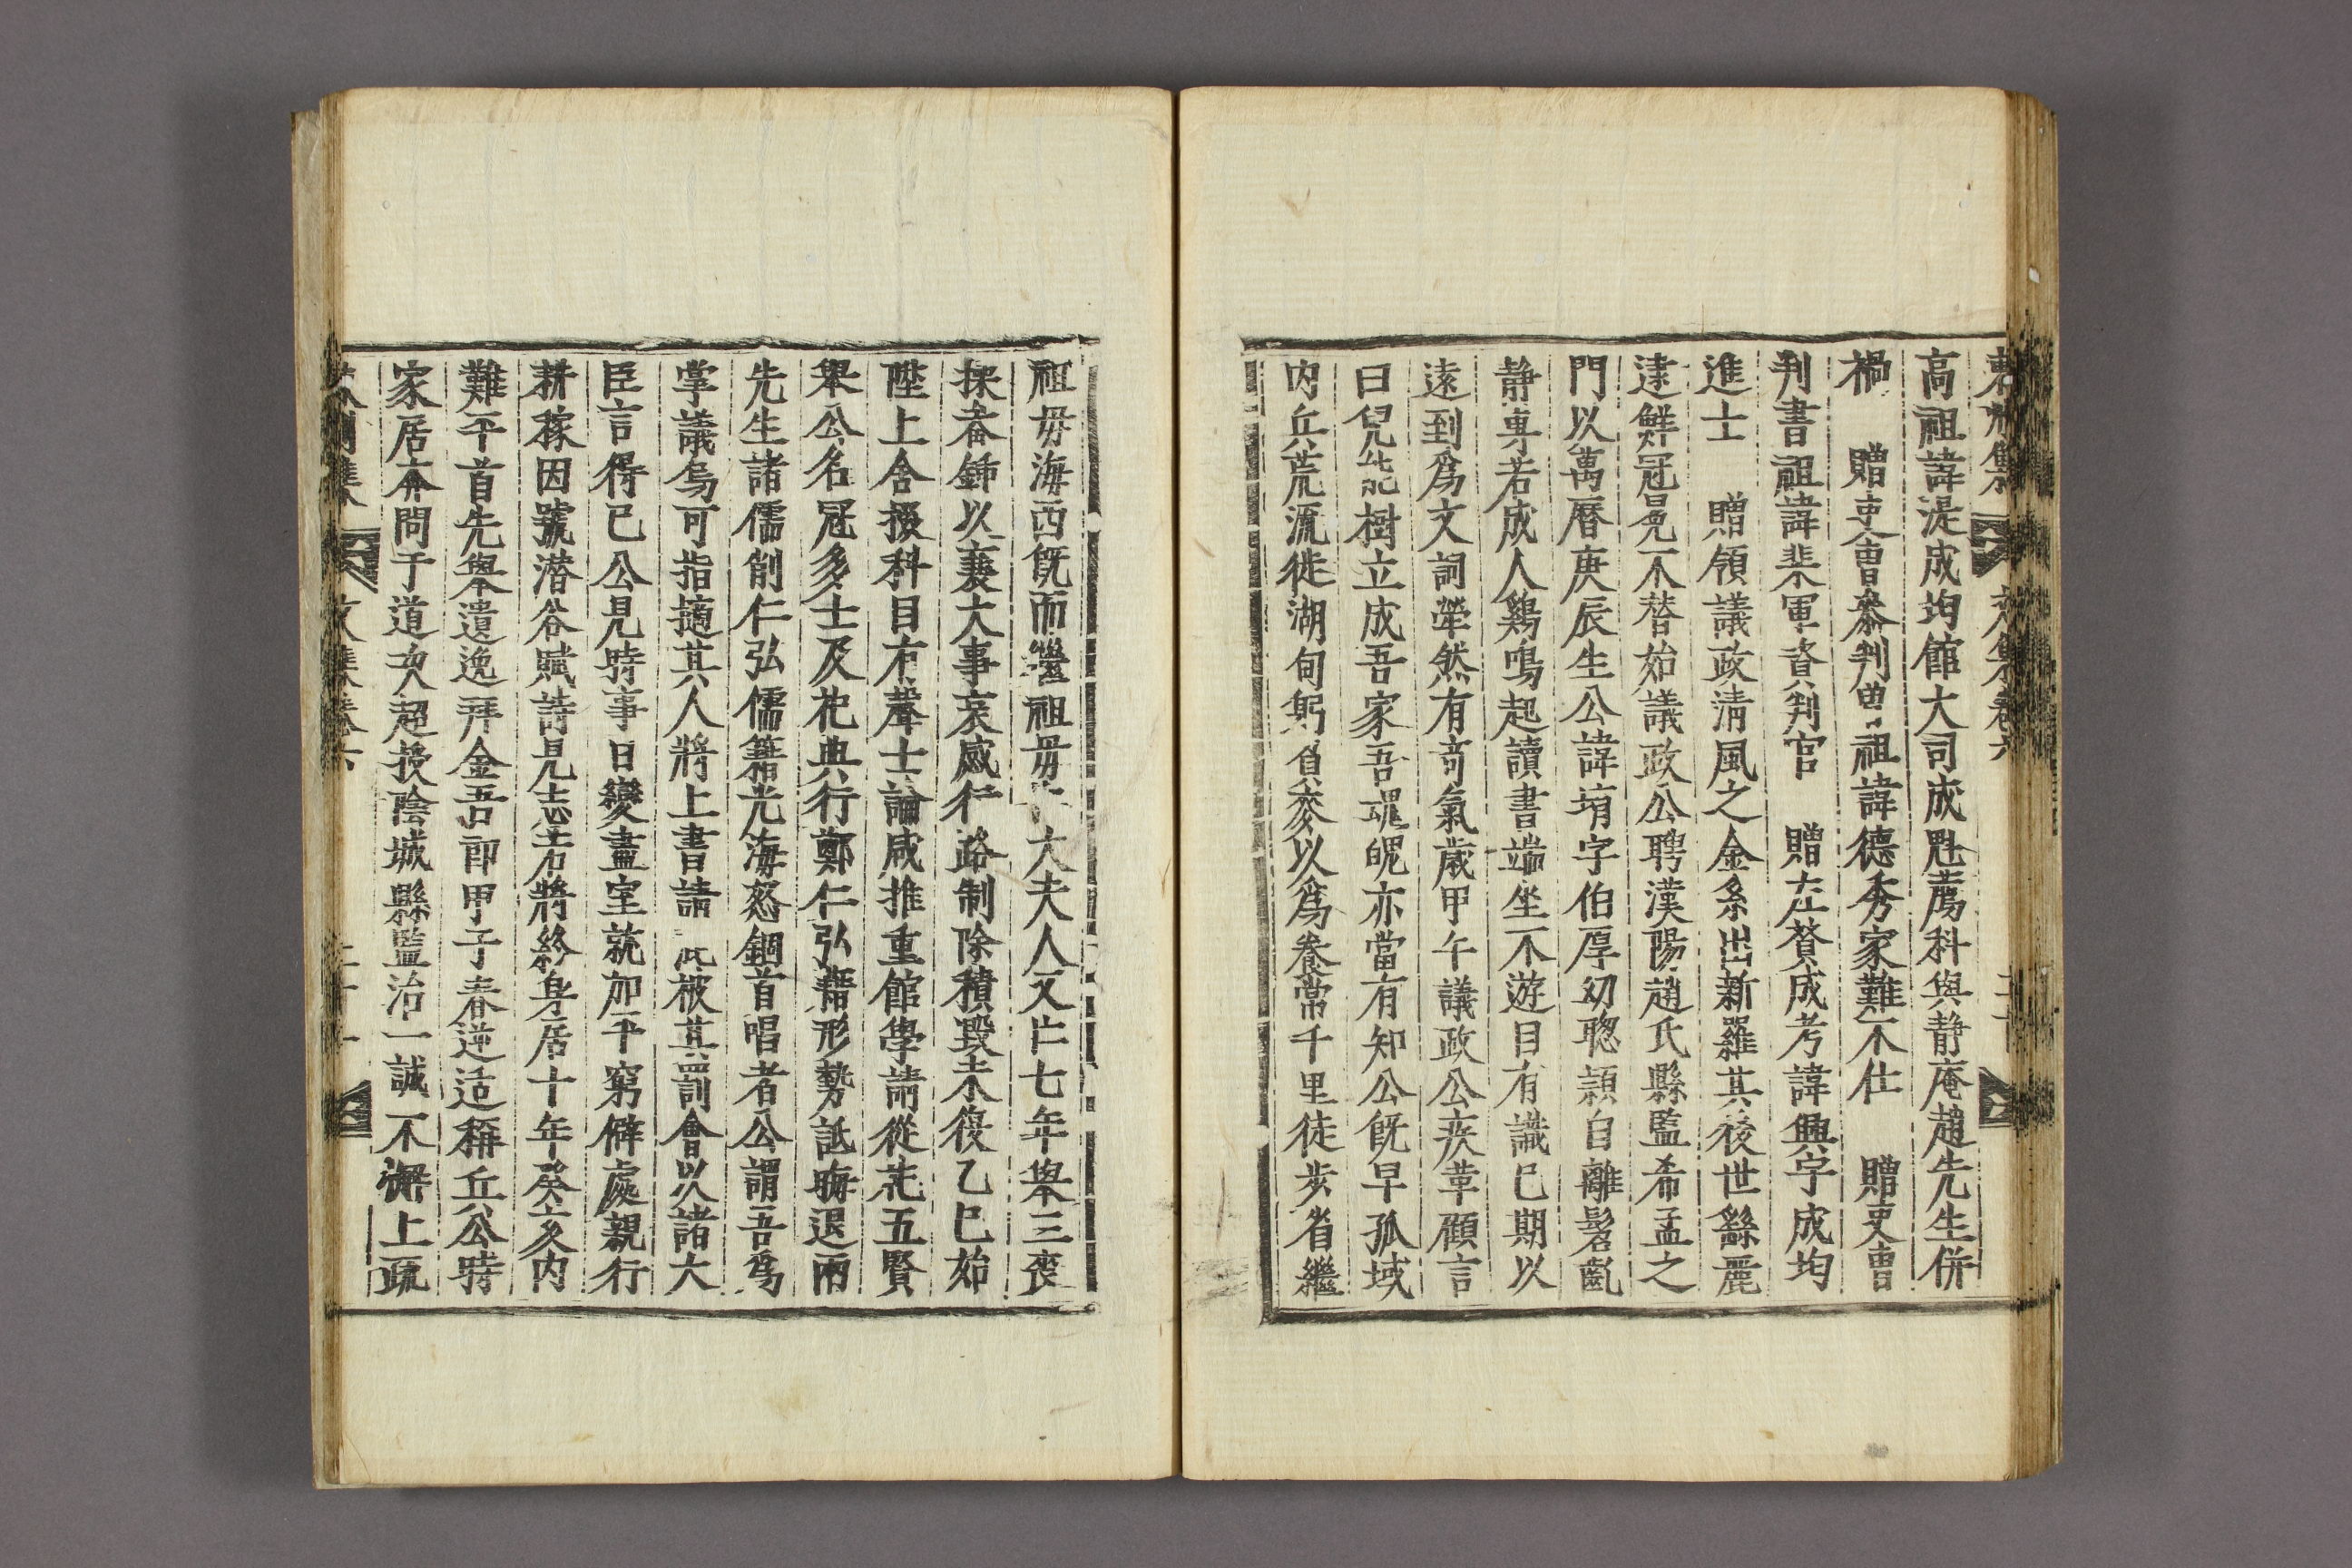 高祖諱湜成均館大司成魁薦科與静庵趙先生併
禍 贈吏曹參判曾祖諱德秀家難不仕 贈吏曹
判書祖諱棐軍資判官 贈左贊成考諱興宇成均
進士 贈領議政淸風之金系出新羅其後世繇麗
逮鮮冠冕不替始議政公聘漢陽趙氏縣監希孟之
門以萬曆庚辰生公諱堉字伯厚幼聰頴自離髫齓
静專若成人鷄鳴起讀書端坐不遊目有識已期以
遠到爲文詞犖然有奇氣歲甲午議政公疾革顧言
曰兒能樹立成吾家吾魂魄亦當有知公旣早孤域
内兵荒流徙湖甸躬負麥以爲養常千里徒步省繼
祖毋海西旣而繼祖毋 大夫人又亡七年擧三喪
操畚鍤以襄大事哀感行路制除積毀 復乙巳始
陞上舍掇科目有聲士論咸推重館學請從祀五賢
擧公名冠多士及祀典行鄭仁弘藉形勢詆晦退兩
先生諸儒削仁弘儒籍光海怒錮首唱者公謂吾爲
掌議烏可指擿其人將上書請 被其罰會以諸大
臣言得已公見時事日變盡室就加平窮僻處親行
耕稼因號潜谷賦詩見志若將終身居十年癸亥内
難平首先擧遺逸拜金吾郎甲子春逆适稱兵公時
家居奔問于道次超授陰城縣監治一誠不懈上疏